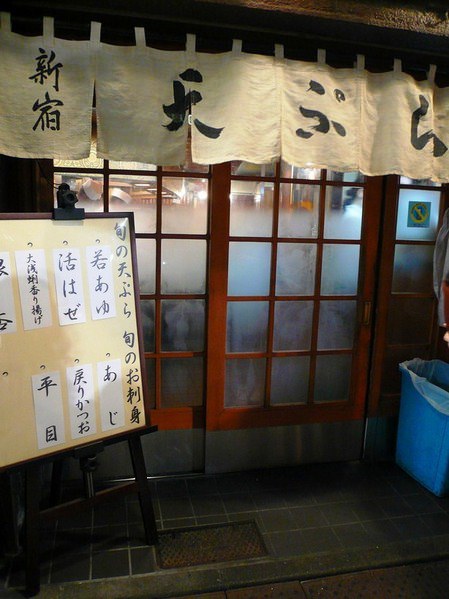 新宿
天ぷら
旬の天ぷら 旬のお刺身
若あゆ
活はぜ
大浅蜊香り揚げ
あじ
戻りかつお
平目